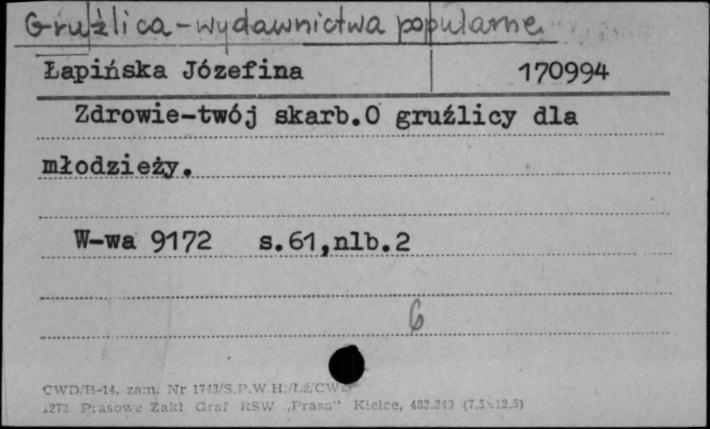 Gruźlica - wydawnictwa popularne
Łapińska Józefina 170994
Zdrowie-twój skarb.O gruźlicy dla
młodzieży.
W-wa 9172 s.61,nlb.2
6
CWD/H-14, zam. Nr 1743/S.P.W.H./LŻ/CWD
1273 Prasowe Zakł Graf RSW „Prasa" Kielce, (7,5x12,5)